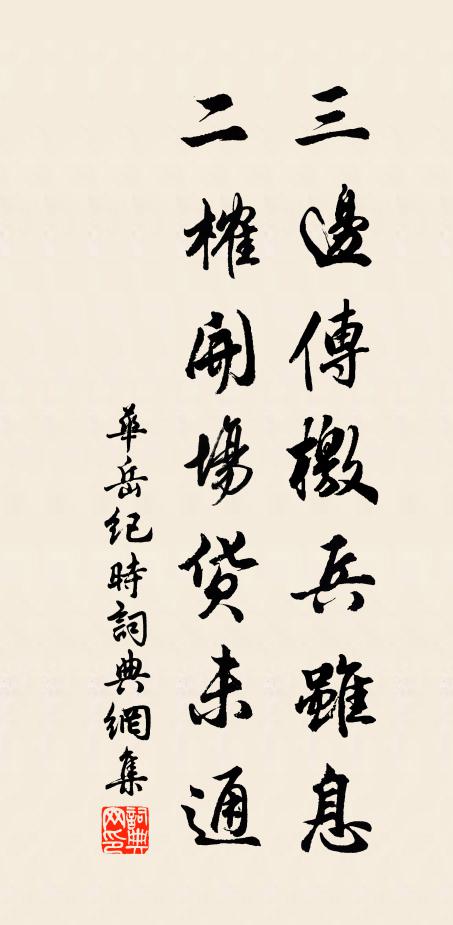 三邊傳檄兵雖息
二榷開場貨未通
華岳紀時詞典網集
詞典網印